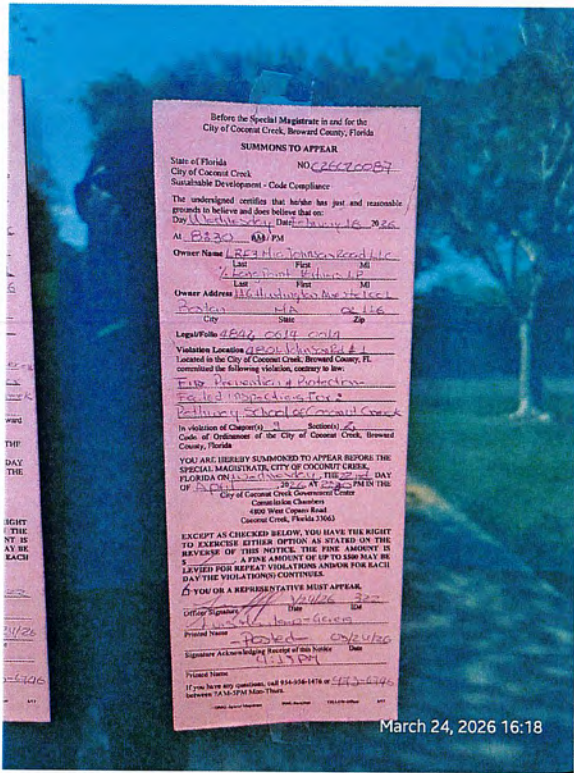 Before the Special Magistrate in and for the
City of Coconut Creek, Broward County, Florida
SUMMONS TO APPEAR
State of Florida NO.
City of Coconut Creek
Sustainable Development - Code Compliance
The undersigned certifies that he/she has just and reasonable
grounds to believe and does believe that on:
Day Wednesday Date February 18 2026
At 8:30 AM/PM
Owner Name LREF3 Johnson Road LLC
Last First MI
% Longpoint LP
Last First MI
Owner Address 116 Huntington Ave
Boston MA 02116
City State Zip
Legal/Folio 4842
Violation Location 4801 Johnson Rd #1
Located in the City of Coconut Creek, Broward County, FL
committed the following violation, contrary to law:
Fire Prevention & Protection
Failed Inspections For:
Pathway School of Coconut Creek
In violation of Chapter(s) 9 Section(s)
Code of Ordinances of the City of Coconut Creek, Broward
County, Florida
YOU ARE HEREBY SUMMONED TO APPEAR BEFORE THE
SPECIAL MAGISTRATE, CITY OF COCONUT CREEK,
FLORIDA ON Wednesday, THE 22nd DAY
OF April, 2026 AT PM IN THE
City of Coconut Creek Government Center
Commission Chambers
4800 West Copans Road
Coconut Creek, Florida 33063
EXCEPT AS CHECKED BELOW, YOU HAVE THE RIGHT
TO EXERCISE EITHER OPTION AS STATED ON THE
REVERSE OF THIS NOTICE. THE FINE AMOUNT IS
$ A FINE AMOUNT OF UP TO $500 MAY BE
LEVIED FOR REPEAT VIOLATIONS AND/OR FOR EACH
DAY THE VIOLATION(S) CONTINUES.
YOU OR A REPRESENTATIVE MUST APPEAR.
3/24/26 322
Officer Signature Date ID#
Printed Name
-Posted- 03/24/26
Signature Acknowledging Receipt of this Notice Date
PM
Printed Name
If you have any questions, call 954-956-1476 or
between 7AM-5PM Mon-Thurs.
March 24, 2026 16:18